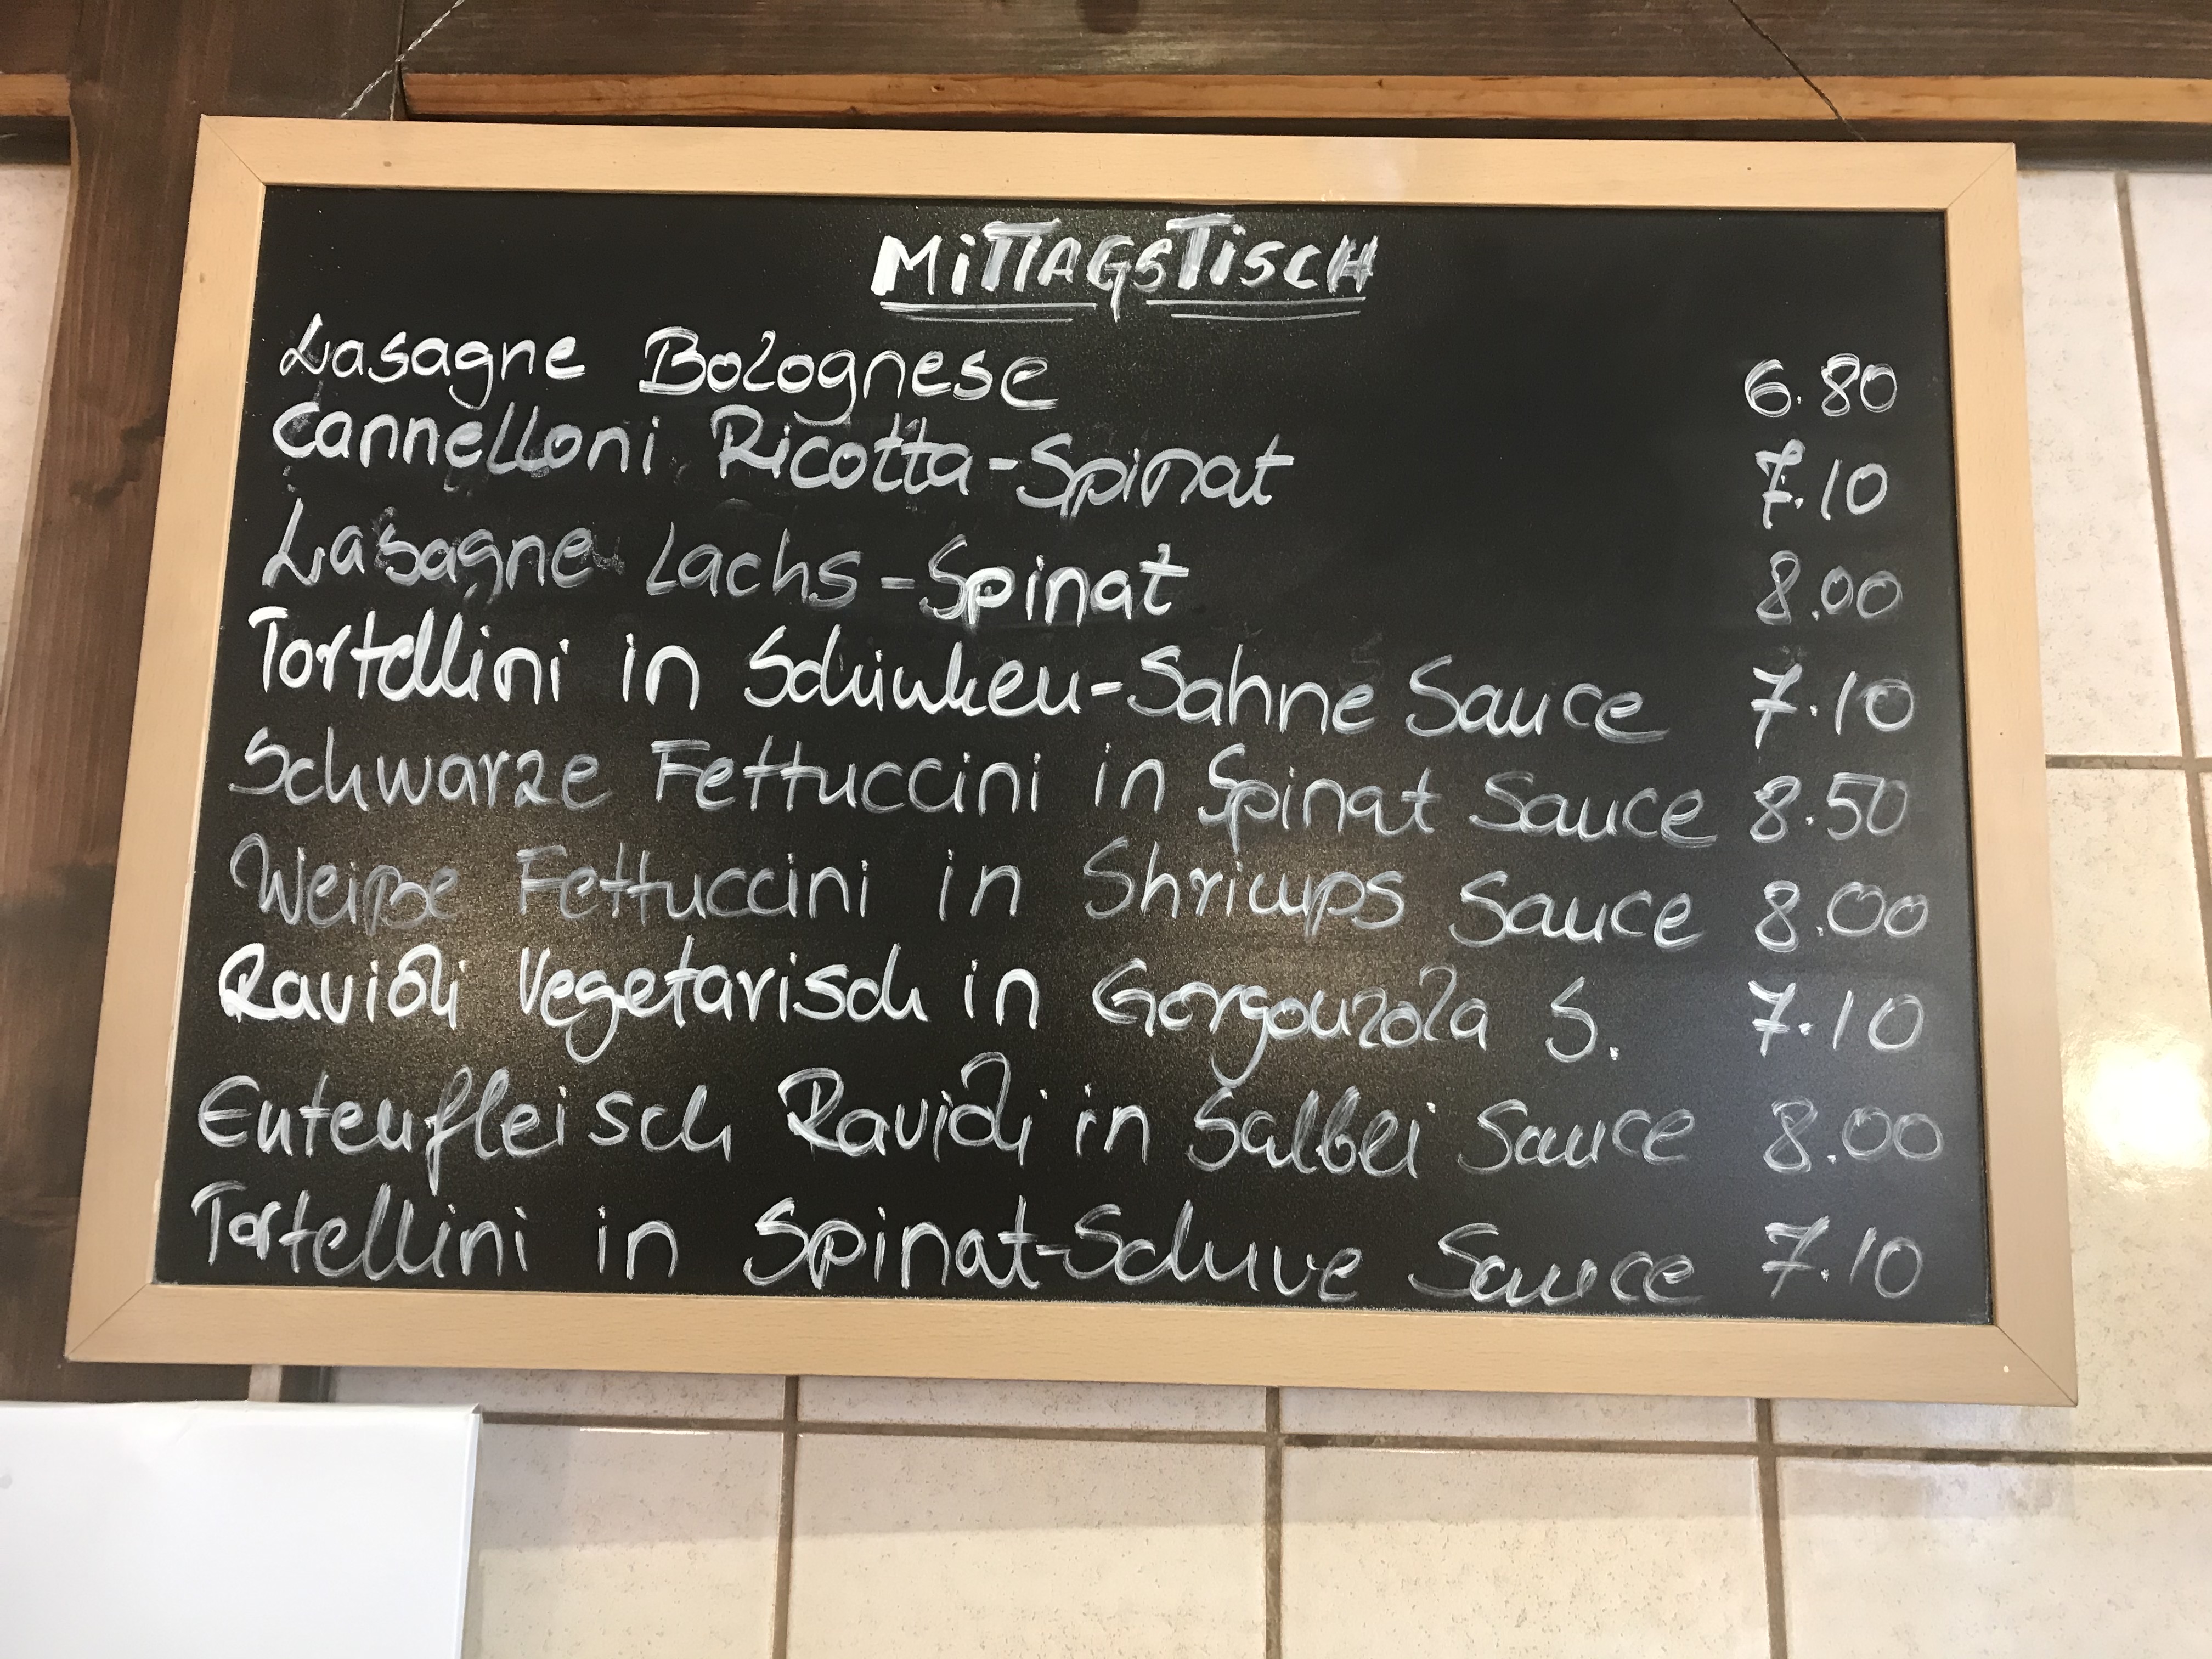 MiTTAGSTiSCH
Lasagne Bolognese 6.80
Cannelloni Ricotta-Spinat 7.10
Lasagne Lachs-Spinat 8.00
Tortellini in Schinken-Sahne Sauce 7.10
Schwarze Fettuccini in Spinat Sauce 8.50
Weiße Fettuccini in Shrimps Sauce 8.00
Ravioli Vegetarisch in Gorgonzola S. 7.10
Entenfleisch Ravioli in Salbei Sauce 8.00
Tortellini in Spinat- Sauce 7.10